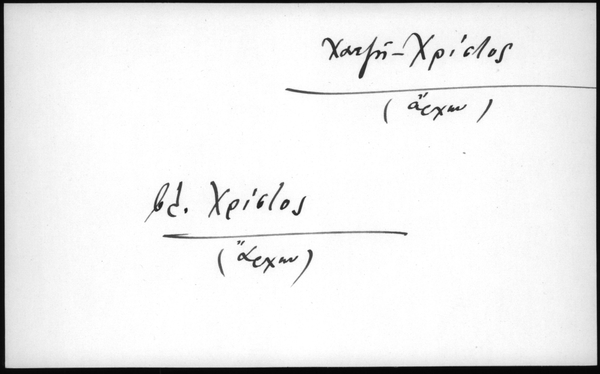 Χατζῆ-Χρίστος
(ἄρχων)
βλ. Χρίστος
(ἄρχων)